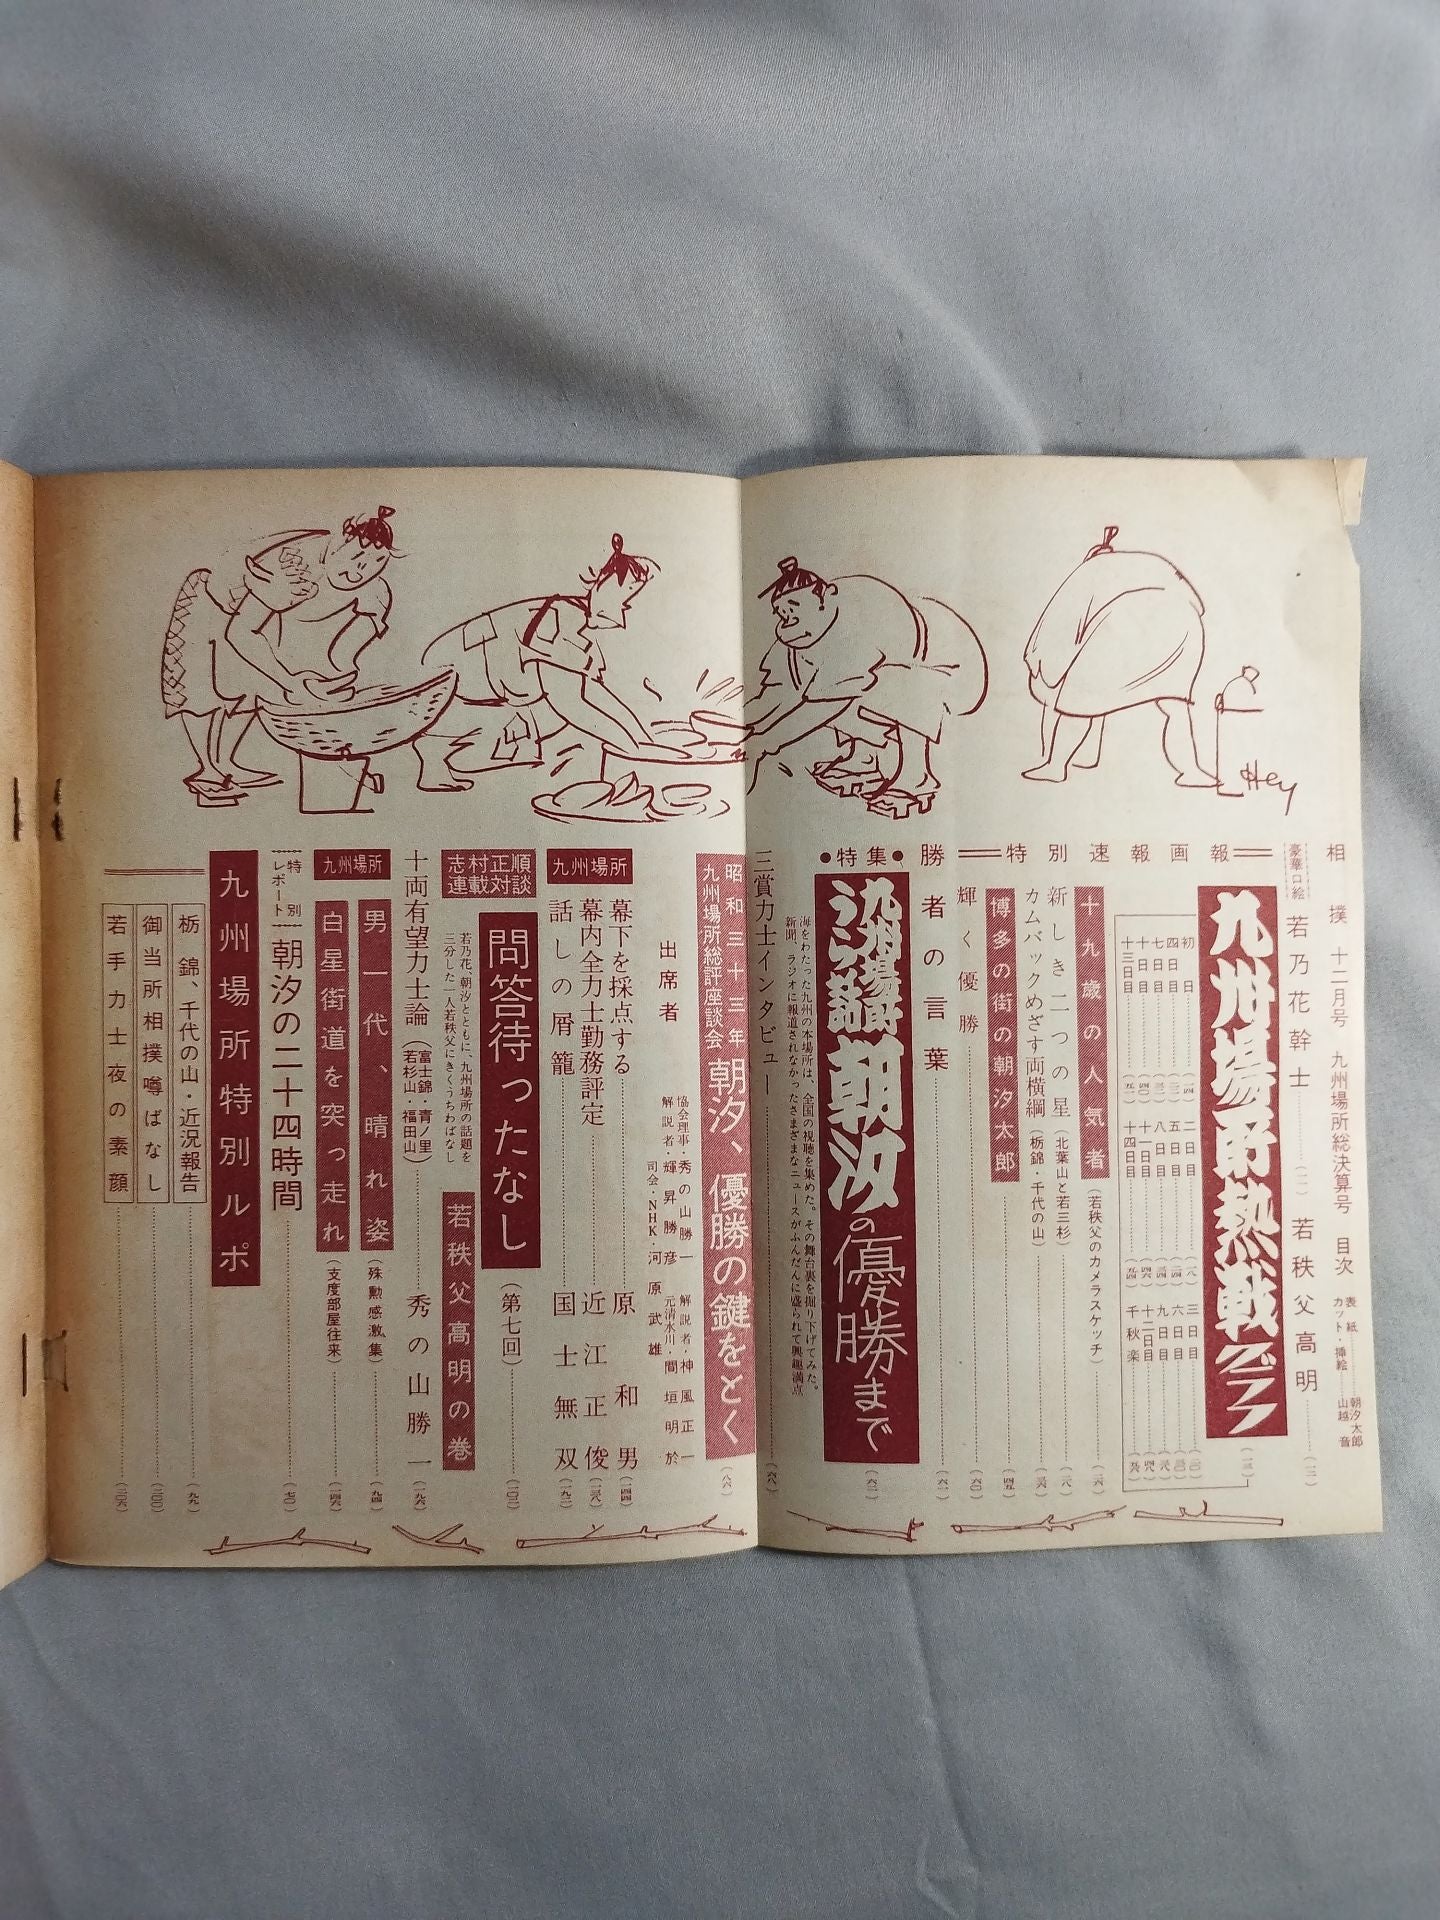 相撲 十二月号 九州場所総決算号 目次
表紙 朝汐太郎
カット・挿絵 山越音
豪華口絵 若乃花幹士 若秩父高明
特別速報画報
九州場所熱戦グラフ
初日 二日目 三日目
四日目 五日目 六日目
七日目 八日目 九日目
十日目 十一日目 十二日目
十三日目 十四日目 千秋楽
十九歳の人気者(若秩父のカメラスケッチ)
新しき二つの星(北葉山と若三杉)
カムバックめざす両横綱(栃錦・千代の山)
博多の街の朝汐太郎
輝く優勝
勝者の言葉
●特集●
九州場所うら話 朝汐の優勝まで
海をわたった九州の本場所は、全国の視聴を集めた。その舞台裏を掘り下げてみた。
新聞、ラジオに報道されなかったさまざまなニュースがふんだんに盛られて興趣満点
三賞力士インタビュー
昭和三十三年
九州場所総評座談会 朝汐、優勝の鍵をとく
出席者
協会理事 秀の山勝一
解説者・輝昇勝彦
司会・NHK・河原武雄
解説者・神風正一
元清水川・間垣明於
九州場所
幕下を採点する 原和男
幕内全力士勤務評定 近江正俊
話しの屑籠 国士無双
志村正順
連載対談
問答待ったなし(第七回)
若乃花、朝汐とともに、九州場所の話題を
三分した一人若秩父にきくうちわばなし
若秩父高明の巻
十両有望力士論(富士錦・青ノ里 若杉山・福田山) 秀の山勝一
九州場所
男一代、晴れ姿(殊勲感激集)
白星街道を突っ走れ(支度部屋往来)
特別レポート 朝汐の二十四時間
九州場所特別ルポ
栃錦、千代の山・近況報告
御当所相撲噂ばなし
若手力士夜の素顔
Hey